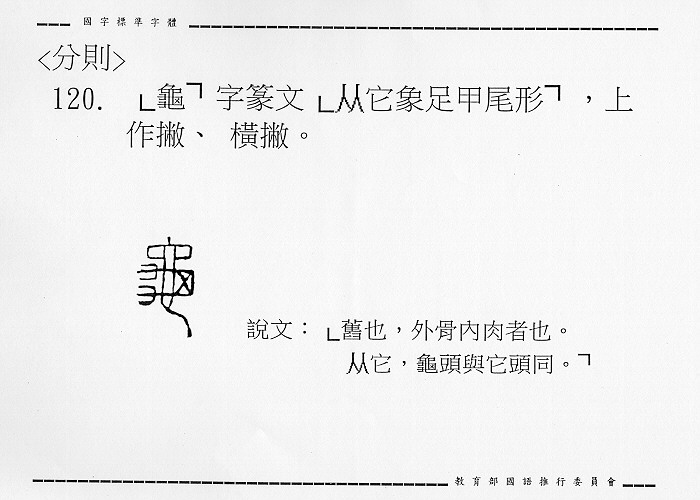 國字標準字體
<分則>
120. 「龜」字篆文「从它象足甲尾形」，上
作撇、橫撇。
說文：「舊也，外骨內肉者也。
从它，龜頭與它頭同。」
教育部國語推行委員會